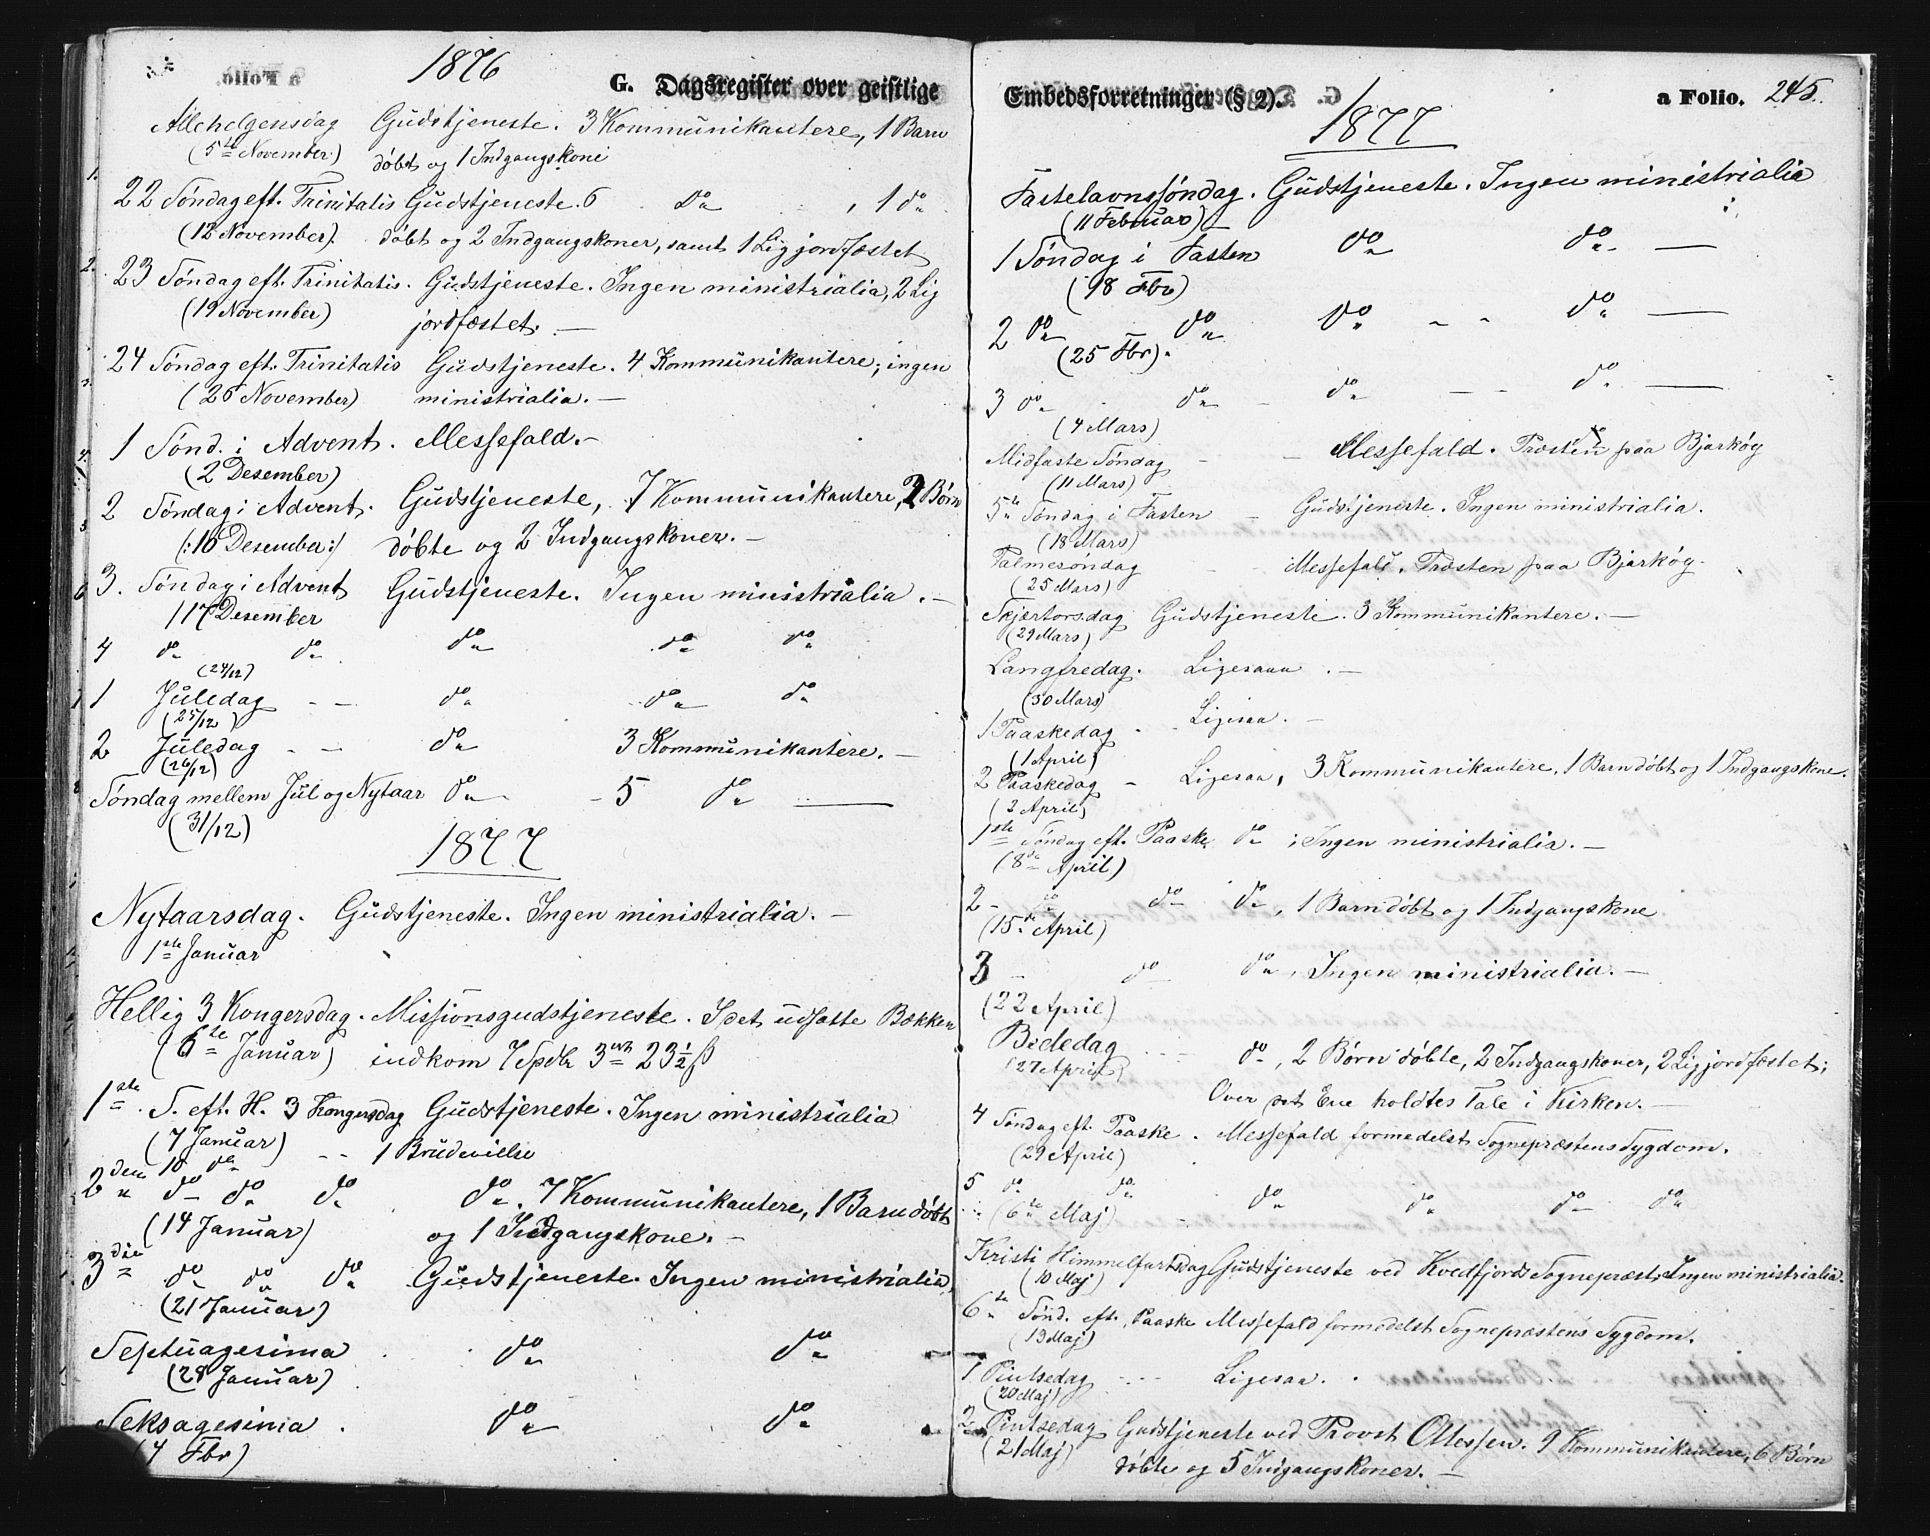 1876
G. Dagsregister over geistlige
Allehelgensdag Gudstjeneste. 3 Kommunikantere, 1 Barn
(5te November) døbt og 1 Indgangskone
22 Søndag eft. Trinitatis Gudstjeneste. 6 do , 1 do
(12 November). døbt og 2 Indgangskoner, samt 1 Lig jordfæstet
23 Søndag eft. Trinitatis. Gudstjeneste. Ingen ministrialia, 2 Lig
(19 November) jordfæstet. —
24 Søndag eft. Trinitatis Gudstjeneste. 4 Kommunikantere; ingen
(26 November) ministrialia. —
1 Sønd. i Advent. Messefald. –
(2 Desember)
2 Søndag i Advent. Gudstjeneste, 7 Kommunikantere, 2 Børn
(:10 Desember:) døbte og 2 Indgangskoner. –
3. Søndag i Advent Gudstjeneste. Ingen ministrialia. –
17 Desember
4 do do do do do
(24/12)
1 Juledag – – do do do
(25/12)
2 Juledag – – do 3 Kommunikantere. –
(26/12)
Søndag mellem Jul og Nytaar do – 5 do —
(31/12)
1877
Nytaarsdag. Gudstjeneste. Ingen ministrialia. –
1ste Januar
Hellig 3 Kongersdag. Missionsgudstjeneste. I det udsatte Bækken
(6te Januar) indkom 7 Spdlr 3 ort 23½ ß
1ste S. eft. H. 3 Kongersdag Gudstjeneste. Ingen ministrialia
(7 Januar) – – 1 Brudevielse
den 10 do
2 do do do do. 7 Kommunikantere, 1 Barn døbt
(14 Januar) og 1 Indgangskone. –
3die do do do Gudstjeneste. Ingen ministrialia,
(21 Januar)
Septuagesima do do
(28 Januar)
Seksagesima. do do
(4 Fbr)
Embedsforretninger (§ 2). a Folio. 245.
1877
Fastelavnssøndag. Gudstjeneste. Ingen ministrialia
(11 Februar)
1 Søndag i Fasten do do —
(18 Fbr)
2 do do do – – do —
(25 Fbr).
3 do do – do – – do —
(4 Mars)
Midfaste Søndag – – Messefald. Præsten paa Bjarkøy
(11 Mars)
5te Søndag i Fasten – Gudstjeneste. Ingen ministrialia.
(18 Mars)
Palmesøndag – – Messefald. Præsten paa Bjarkøy.
(25 Mars)
Skjertorsdag Gudstjeneste. 3 Kommunikantere. –
(29 Mars)
Langfredag. Ligesaaa. –
(30 Mars)
1 Paaskedag – . Ligesaa. –
(1 April)
2 Paaskedag – Ligesaa, 3 Kommunikantere, 1 Barn døbt og 1 Indgangskone.
(2 April)
1ste Søndag eft. Paaske do ; Ingen ministrialia. –
(8de April)
2 – do do do, 1 Barn døbt og 1 Indgangskone
(15de April)
3 – do do, Ingen ministrialia. –
(22 April)
Bededag do, 2 Børn døbte, 2 Indgangskoner, 2 Lig jordfæstet;
(27 April)
Over det Ene holdtes Tale i Kirken. —
4 Søndag eft. Paaske. Messefald formedelst Sognepræstens Sygdom.
(29 April)
5 do do do do do do
(6te Maj)
Kristi Himmelfartsdag Gudstjeneste ved Kvedfjords Sognepræst. Ingen ministrialia.
(10 Maj)
6te Sønd. eft. Paaske Messefald formedelst Sognepræstens Sygdom.
(13 Maj)
1 Pintsedag – – – Ligesaa. .
(20 Maj)
2 Pintsedag Gudstjeneste ved Provst Ottessen. 9 Kommunikantere, 6 Børn
(21 Maj) døbte og 5 Indgangskoner. –